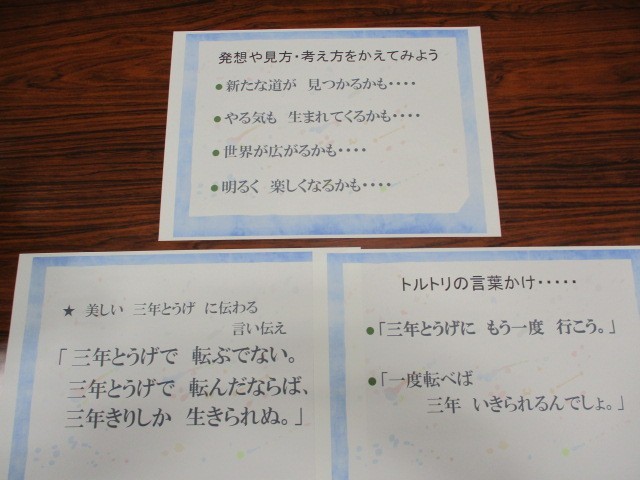 発想や見方・考え方をかえてみよう
●新たな道が 見つかるかも・・・・
●やる気も 生まれてくるかも・・・・
●世界が広がるかも・・・・
●明るく 楽しくなるかも・・・・
★ 美しい 三年とうげ に伝わる
言い伝え
「三年とうげで 転ぶでない。
三年とうげで 転んだならば、
三年きりしか 生きられぬ。」
トルトリの言葉かけ・・・・・
●「三年とうげに もう一度 行こう。」
●「一度転べば
三年 いきられるんでしょ。」